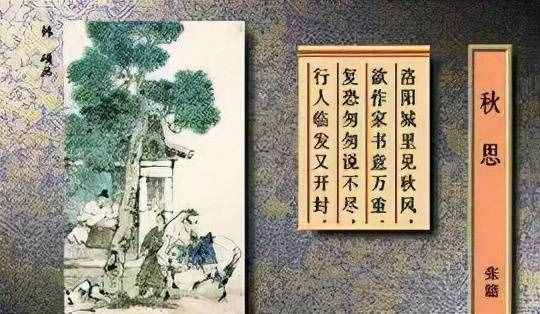 秋思
张籍
洛阳城里见秋风，
欲作家书意万重．
复恐匆匆说不尽，
行人临发又开封．